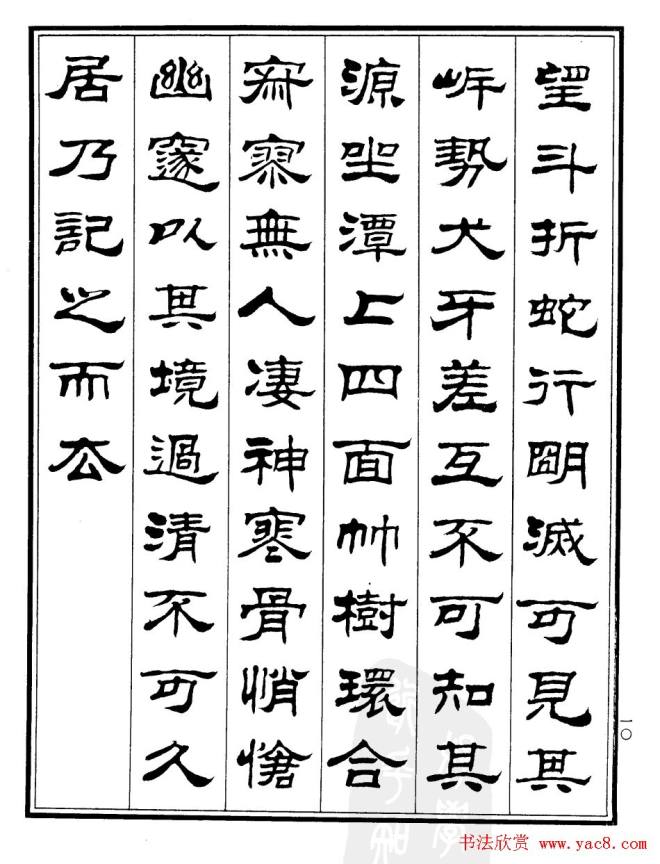 望斗折蛇行明滅可見其
岸勢犬牙差互不可知其
源坐潭上四面竹樹環合
寂寥無人凄神寒骨悄愴
幽邃以其境過清不可久
居乃記之而去
一〇
书法欣赏 www.yac8.com